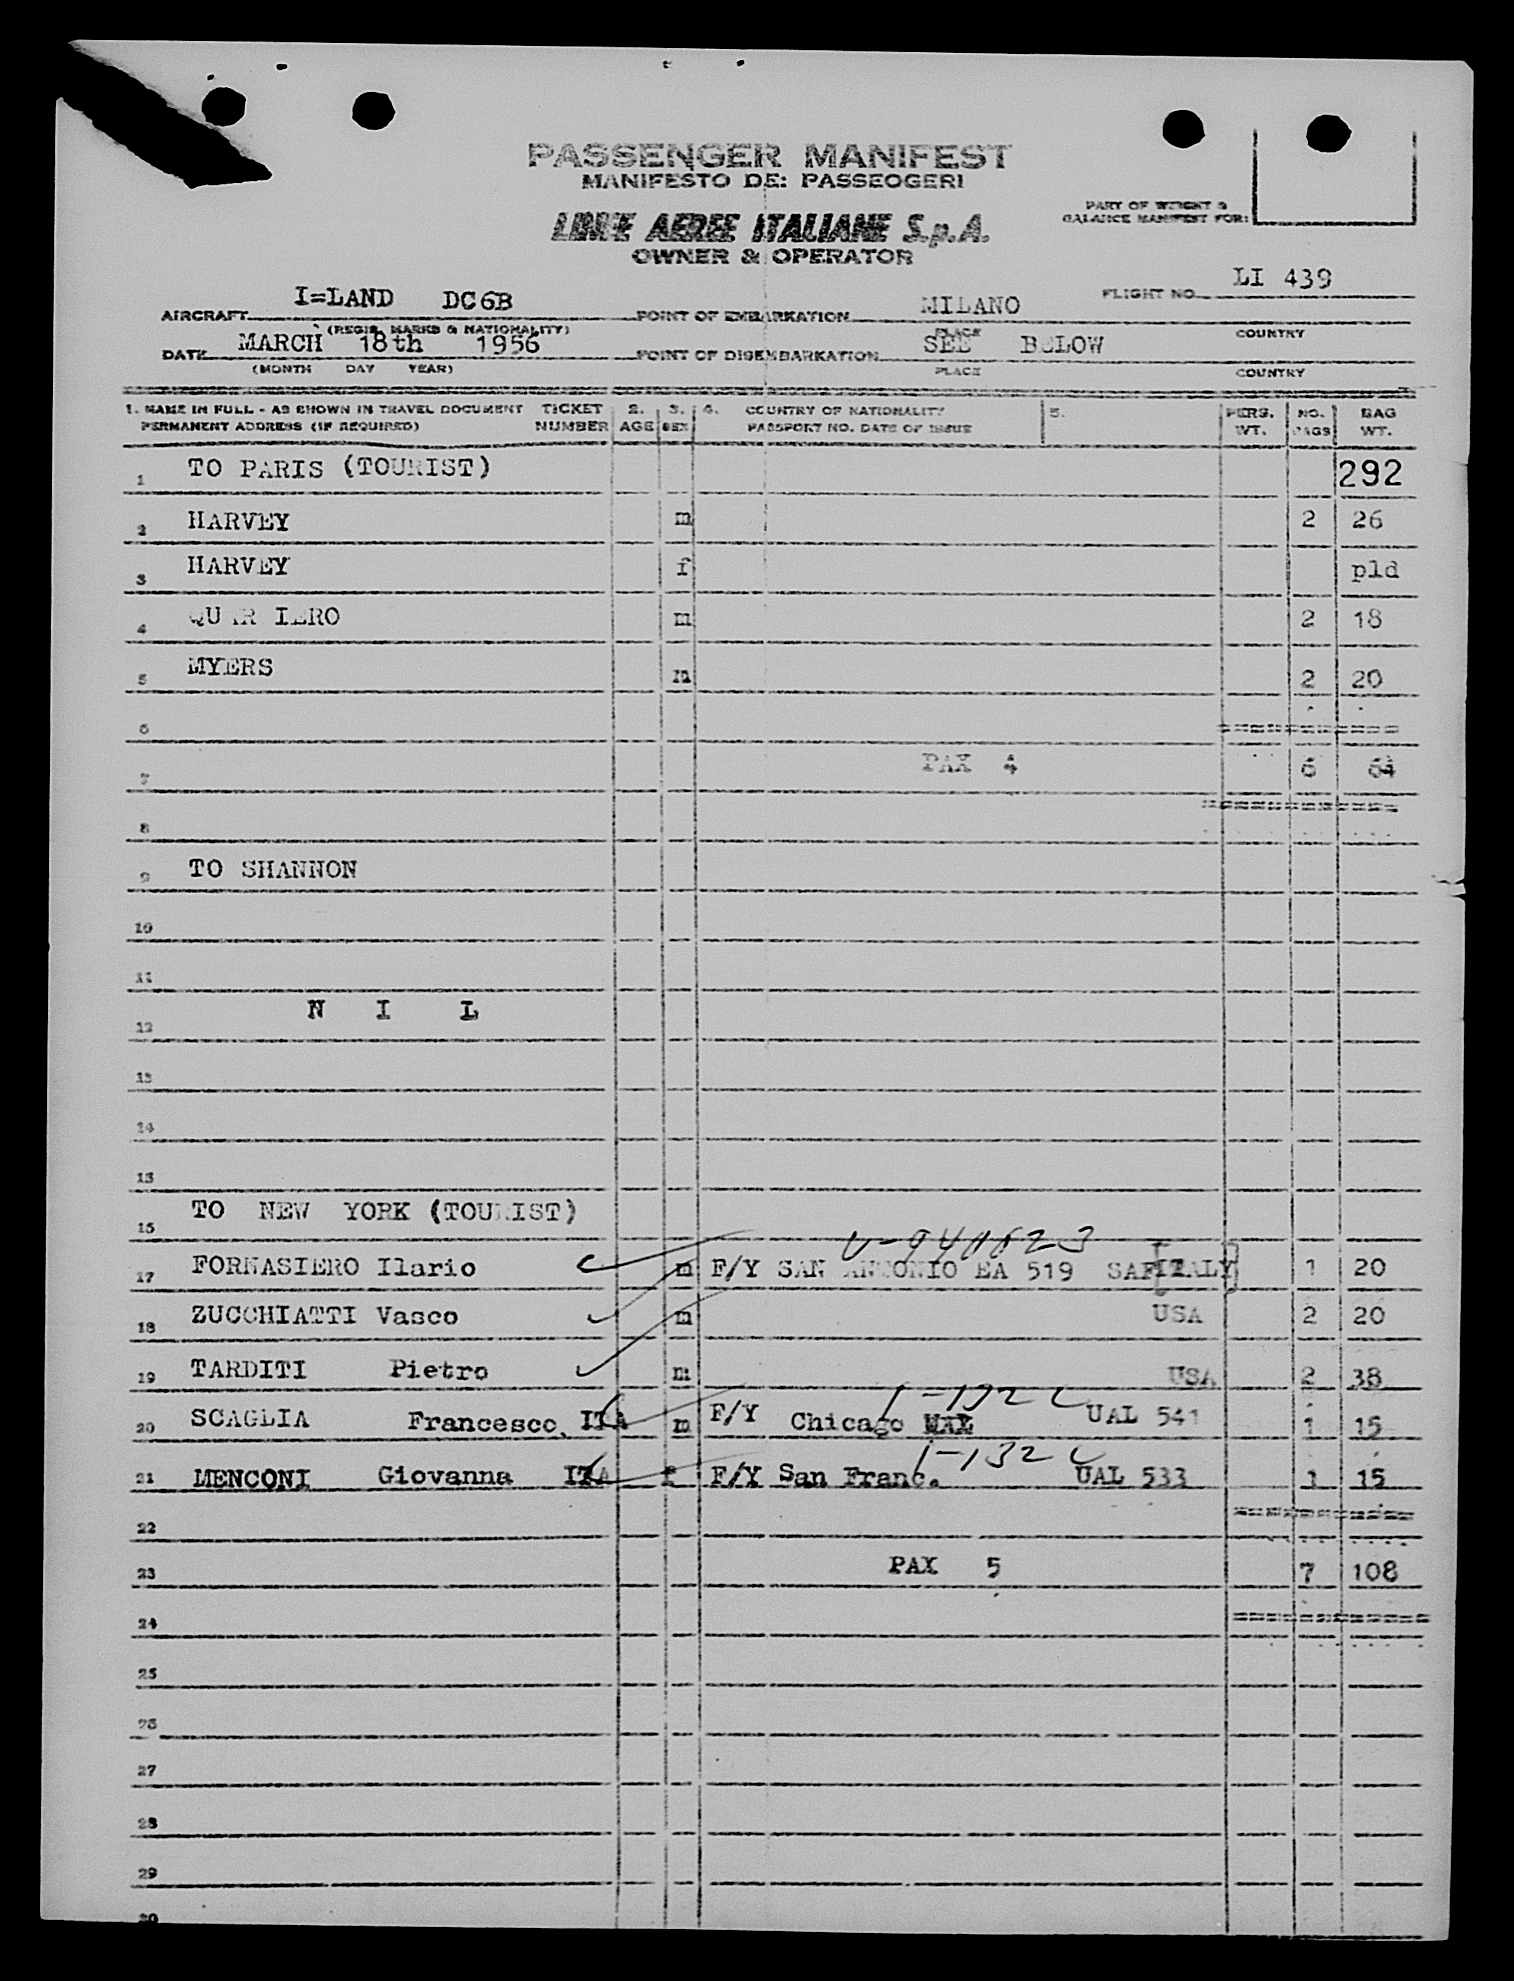 PASSENGER MANIFEST
MANIFESTO DEI PASSEGGERI
LINEE AEREE ITALIANE S.p.A.
OWNER & OPERATOR
PART OF WEIGHT &
BALANCE MANIFEST FOR:
292
AIRCRAFT I=LAND DC6B POINT OF EMBARKATION MILANO FLIGHT NO. LI 439
(REGIS. MARKS & NATIONALITY) PLACE COUNTRY
DATE MARCH 18th 1956 POINT OF DISEMBARKATION SEE BELOW
(MONTH DAY YEAR) PLACE COUNTRY
1. NAME IN FULL - AS SHOWN IN TRAVEL DOCUMENT TICKET 2. 3. 4. COUNTRY OF NATIONALITY 5. PERS. NO. BAG
PERMANENT ADDRESS (IF REQUIRED) NUMBER AGE SEX PASSPORT NO. DATE OF ISSUE WT. BAGS WT.
1 TO PARIS (TOURIST)
2 HARVEY m 2 26
3 HARVEY f pld
4 m 2 18
5 MYERS m 2 20
6
7 PAX 4 6 64
8
9 TO SHANNON
10
11
12 N I L
13
14
15
15 TO NEW YORK (TOURIST)
17 FORNASIERO Ilario m F/Y SAN ANTONIO EA 519 ITALY 1 20
18 ZUCCHIATTI Vasco m USA 2 20
19 TARDITI Pietro m USA 2 38
20 SCAGLIA Francesco, ITA m F/Y Chicago UAL 541 1 15
21 MENCONI Giovanna ITA f F/Y San Franc. UAL 533 1 15
22
23 PAX 5 7 108
24
25
26
27
28
29
30